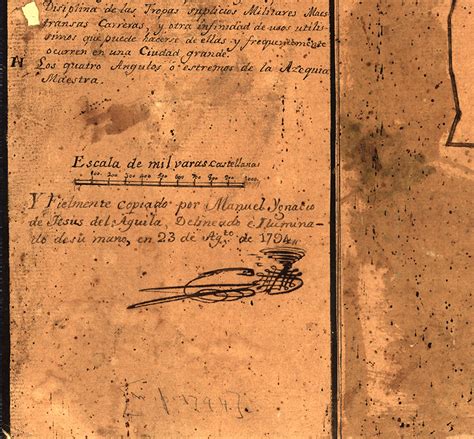 Disiplina de las Tropas suplicios Militares Maes
transas Carreras, y otra infinidad de usos utilis-
simos que puede hacerse de ellas y frequentemente
ocurren en una Ciudad grande
N Los quatro Angulos o estremos de la Azequia
Maestra.
Escala de mil varas Castellanas
100. 200. 300. 400. 500. 600. 700. 800. 900. 1000.
Y Fielmente copiado por Manuel Ygnacio
de Jesus del Aguila, Delineado é Ilumina-
do de su mano, en 23 de Agto. de 1794